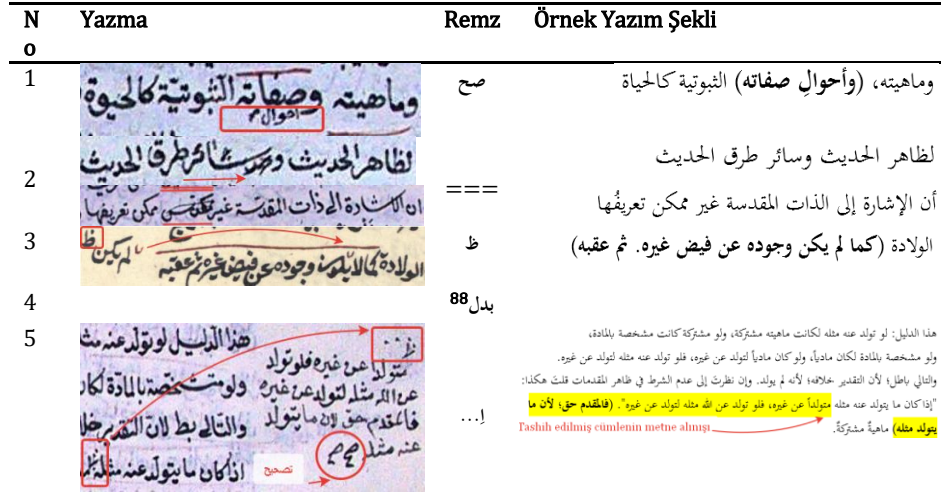 No Yazma Remz Örnek Yazım Şekli
1
وماهيته وصفاته الثبوتية كالحيوة
احوال
صح
وماهيته، (وأحوالِ صفاته) الثبوتية كالحياة
2
لظاهر الحديث وسائر طرق الحديث
ان الاشارة الى ذات المقدسة غير ممكن تعريفها
===
لظاهر الحديث وسائر طرق الحديث
أن الإشارة إلى الذات المقدسة غير ممكن تعريفُها
3
ظ
لم يكن
الولادة كما لا يكون وجوده عن فيض غيره ثم عقبه
ظ
الولادة (كما لم يكن وجوده عن فيض غيره. ثم عقبه)
4
بدل88
5
هذا الدليل لو تولد عنه مث
ولو متشخصة بالمادة لكان
والتالي بط لان التقدير خلا
اذا كان ما يتولد عنه مثله
متولدا عن غيره فلو تولد
عن الله مثله لتولد عن غيره
فالمقدم حق لان ما يتولد
عنه مثله صح صح
تصحيح
اِ...
هذا الدليل: لو تولد عنه مثله لكانت ماهيته مشتركة، ولو مشتركة كانت مشخصة بالمادة،
ولو مشخصة بالمادة لكان مادياً، ولو كان مادياً لتولد عن غيره، فلو تولد عنه مثله لتولد عن غيره.
والتالي باطل؛ لأن التقدير خلافه؛ لأنه لم يولد. وإن نظرتَ إلى عدم الشرط في ظاهر المقدمات قلتَ هكذا:
"إذا كان ما يتولد عنه مثله متولداً عن غيره، فلو تولد عن الله مثله لتولد عن غيره". (فالمقدم حق؛ لأن ما
يتولد مثله) ماهيةٌ مشتركةٌ.
Tashih edilmiş cümlenin metne alınışı